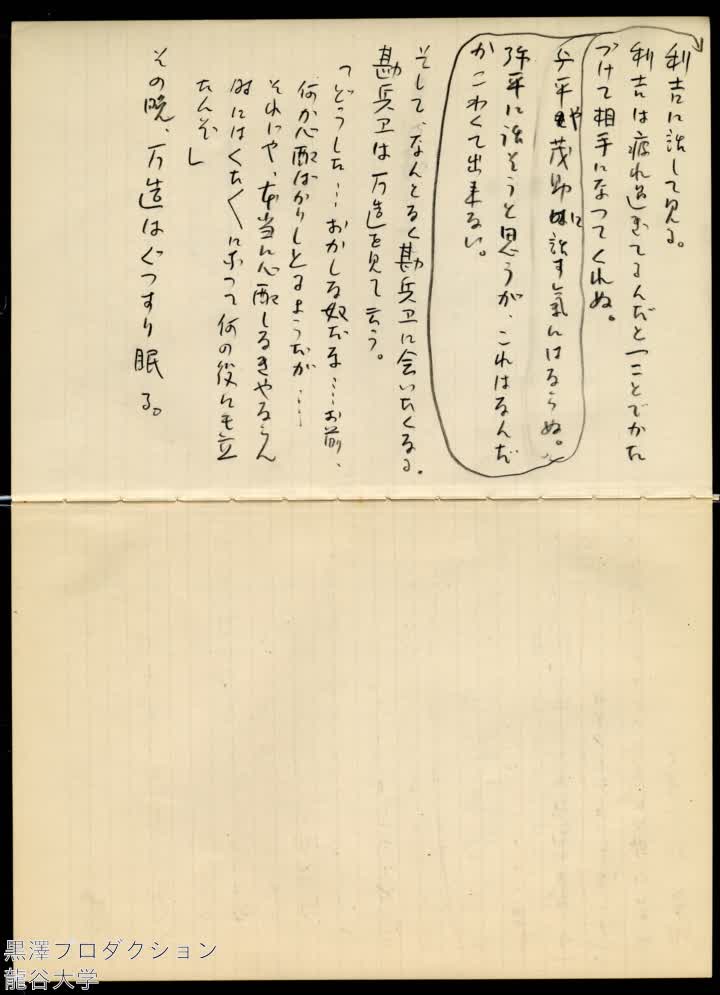 利吉に話して見る。
利吉は疲れ過ぎてるんだと一ことでかた
づけて相手になつてくれぬ。
与平や茂助に話す氣にはならぬ。
弥平に話そうと思うが、これはなんだ
かこわくて出来ない。
そして、なんとなく勘兵卫に会いたくなる。
勘兵卫は万造を見て云う。
「どうした…おかしな奴だな……お前、
何か心配ばかりしとるようだが……
それじや、本当に心配しなきやならん
時にはくたくたになつて何の役にも立
たんぞ」
その晩、万造はぐつすり眠る。
黒澤プロダクション
龍谷大学